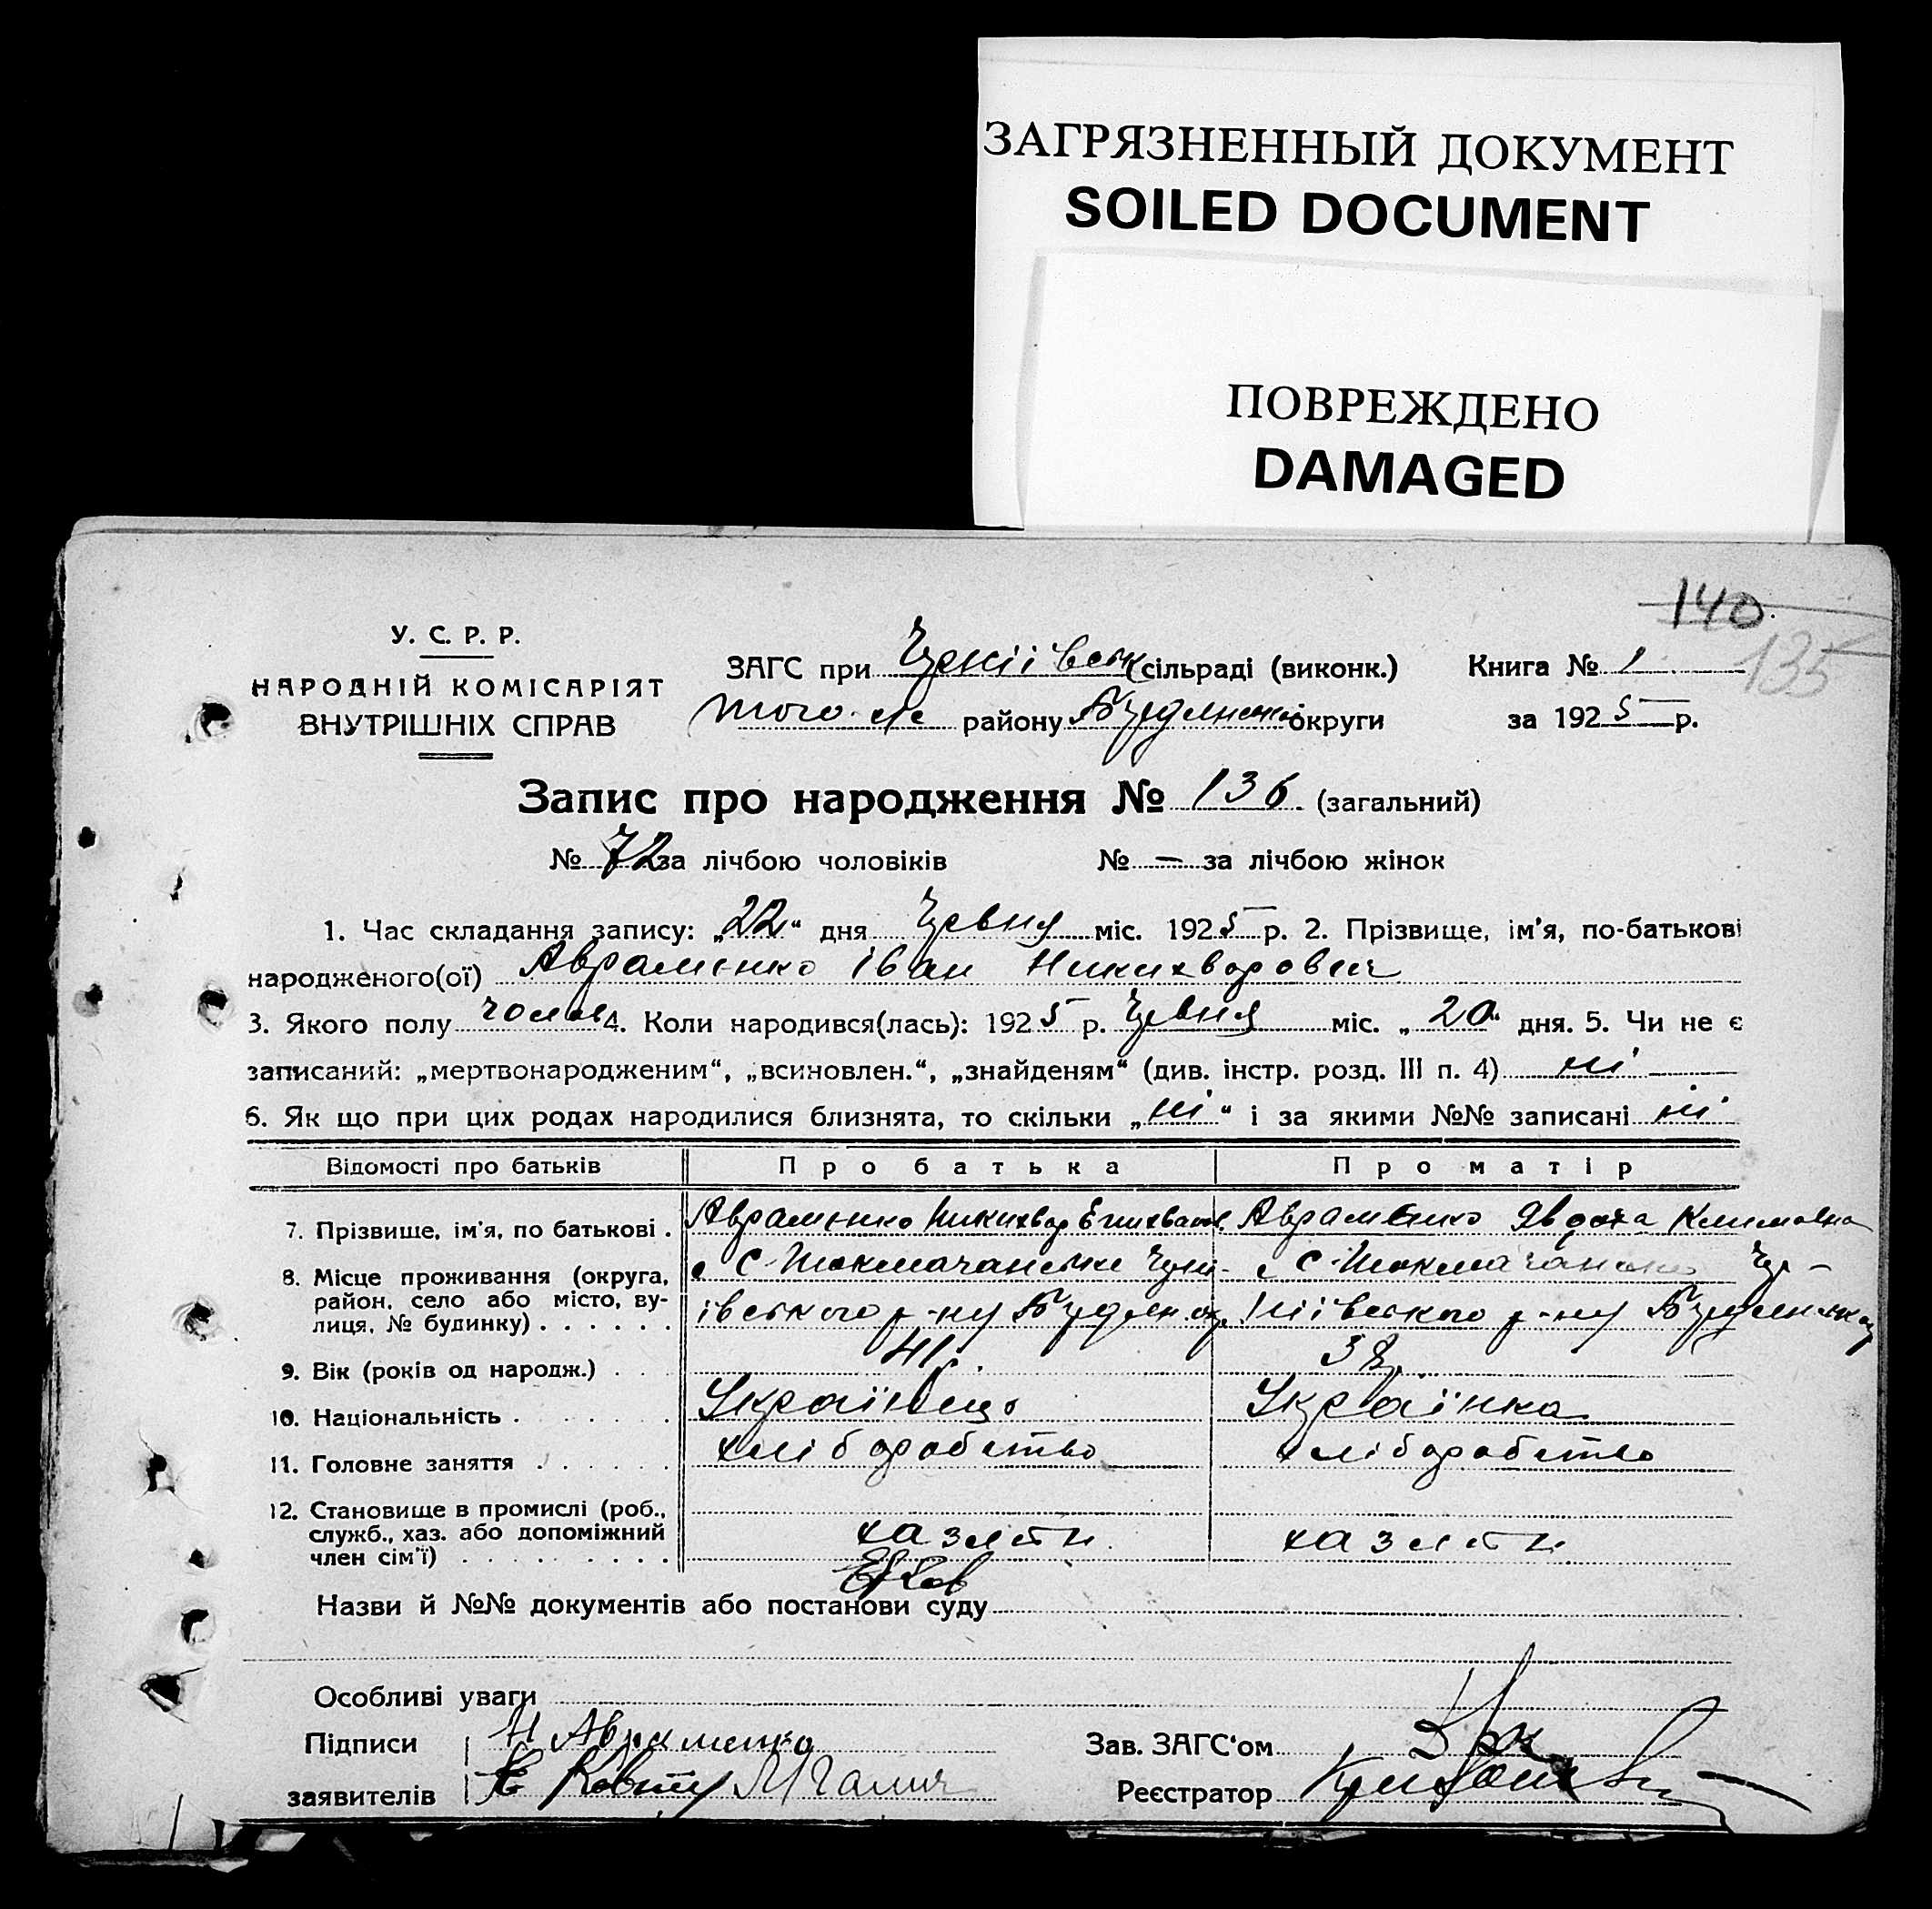 ЗАГРЯЗНЕННЫЙ ДОКУМЕНТ
SOILED DOCUMENT
ПОВРЕЖДЕНО
DAMAGED
140
135
У. С. Р. Р.
НАРОДНІЙ КОМІСАРІЯТ
ВНУТРІШНІХ СПРАВ
ЗАГС при сільраді (виконк.) Книга № 1
того же району округи за 1925 р.
Запис про народження № 136 (загальний)
№ 72 за лічбою чоловіків № — за лічбою жінок
1. Час складання запису: „22“ дня Червня міс. 1925 р. 2. Прізвище, ім'я, по-батькові
народженого(ої) Авраменко Іван Никихворович
3. Якого полу чолов 4. Коли народився(лась): 1925 р. Червня міс. „20“ дня. 5. Чи не є
записаний: „мертвонародженим“, „всиновлен.“, „знайденям“ (див. інстр. розд. III п. 4) ні
6. Як що при цих родах народилися близнята, то скільки „ні“ і за якими №№ записані ні
Відомості про батьків Про батька Про матір
7. Прізвище, ім'я, по батькові . Авраменко Никихвор Авраменко Явдоха Климовна
8. Місце проживання (округа, с. Токмачанське с. Токмачанське
район, село або місто, ву-
лиця, № будинку) . . . . . . івського р-ну р-ну
9. Вік (років од народж.) . . . 41 р. 38 р.
10. Національність . . . . . Українець Українка
11. Головне заняття . . . . . хліборобство хліборобство
12. Становище в промислі (роб.,
служб., хаз. або допоміжний
член сім'ї) . . . . . . . . .
Назви й №№ документів або постанови суду
Особливі уваги
Підписи Н Авраменко Зав. ЗАГС'ом
заявителів Реєстратор